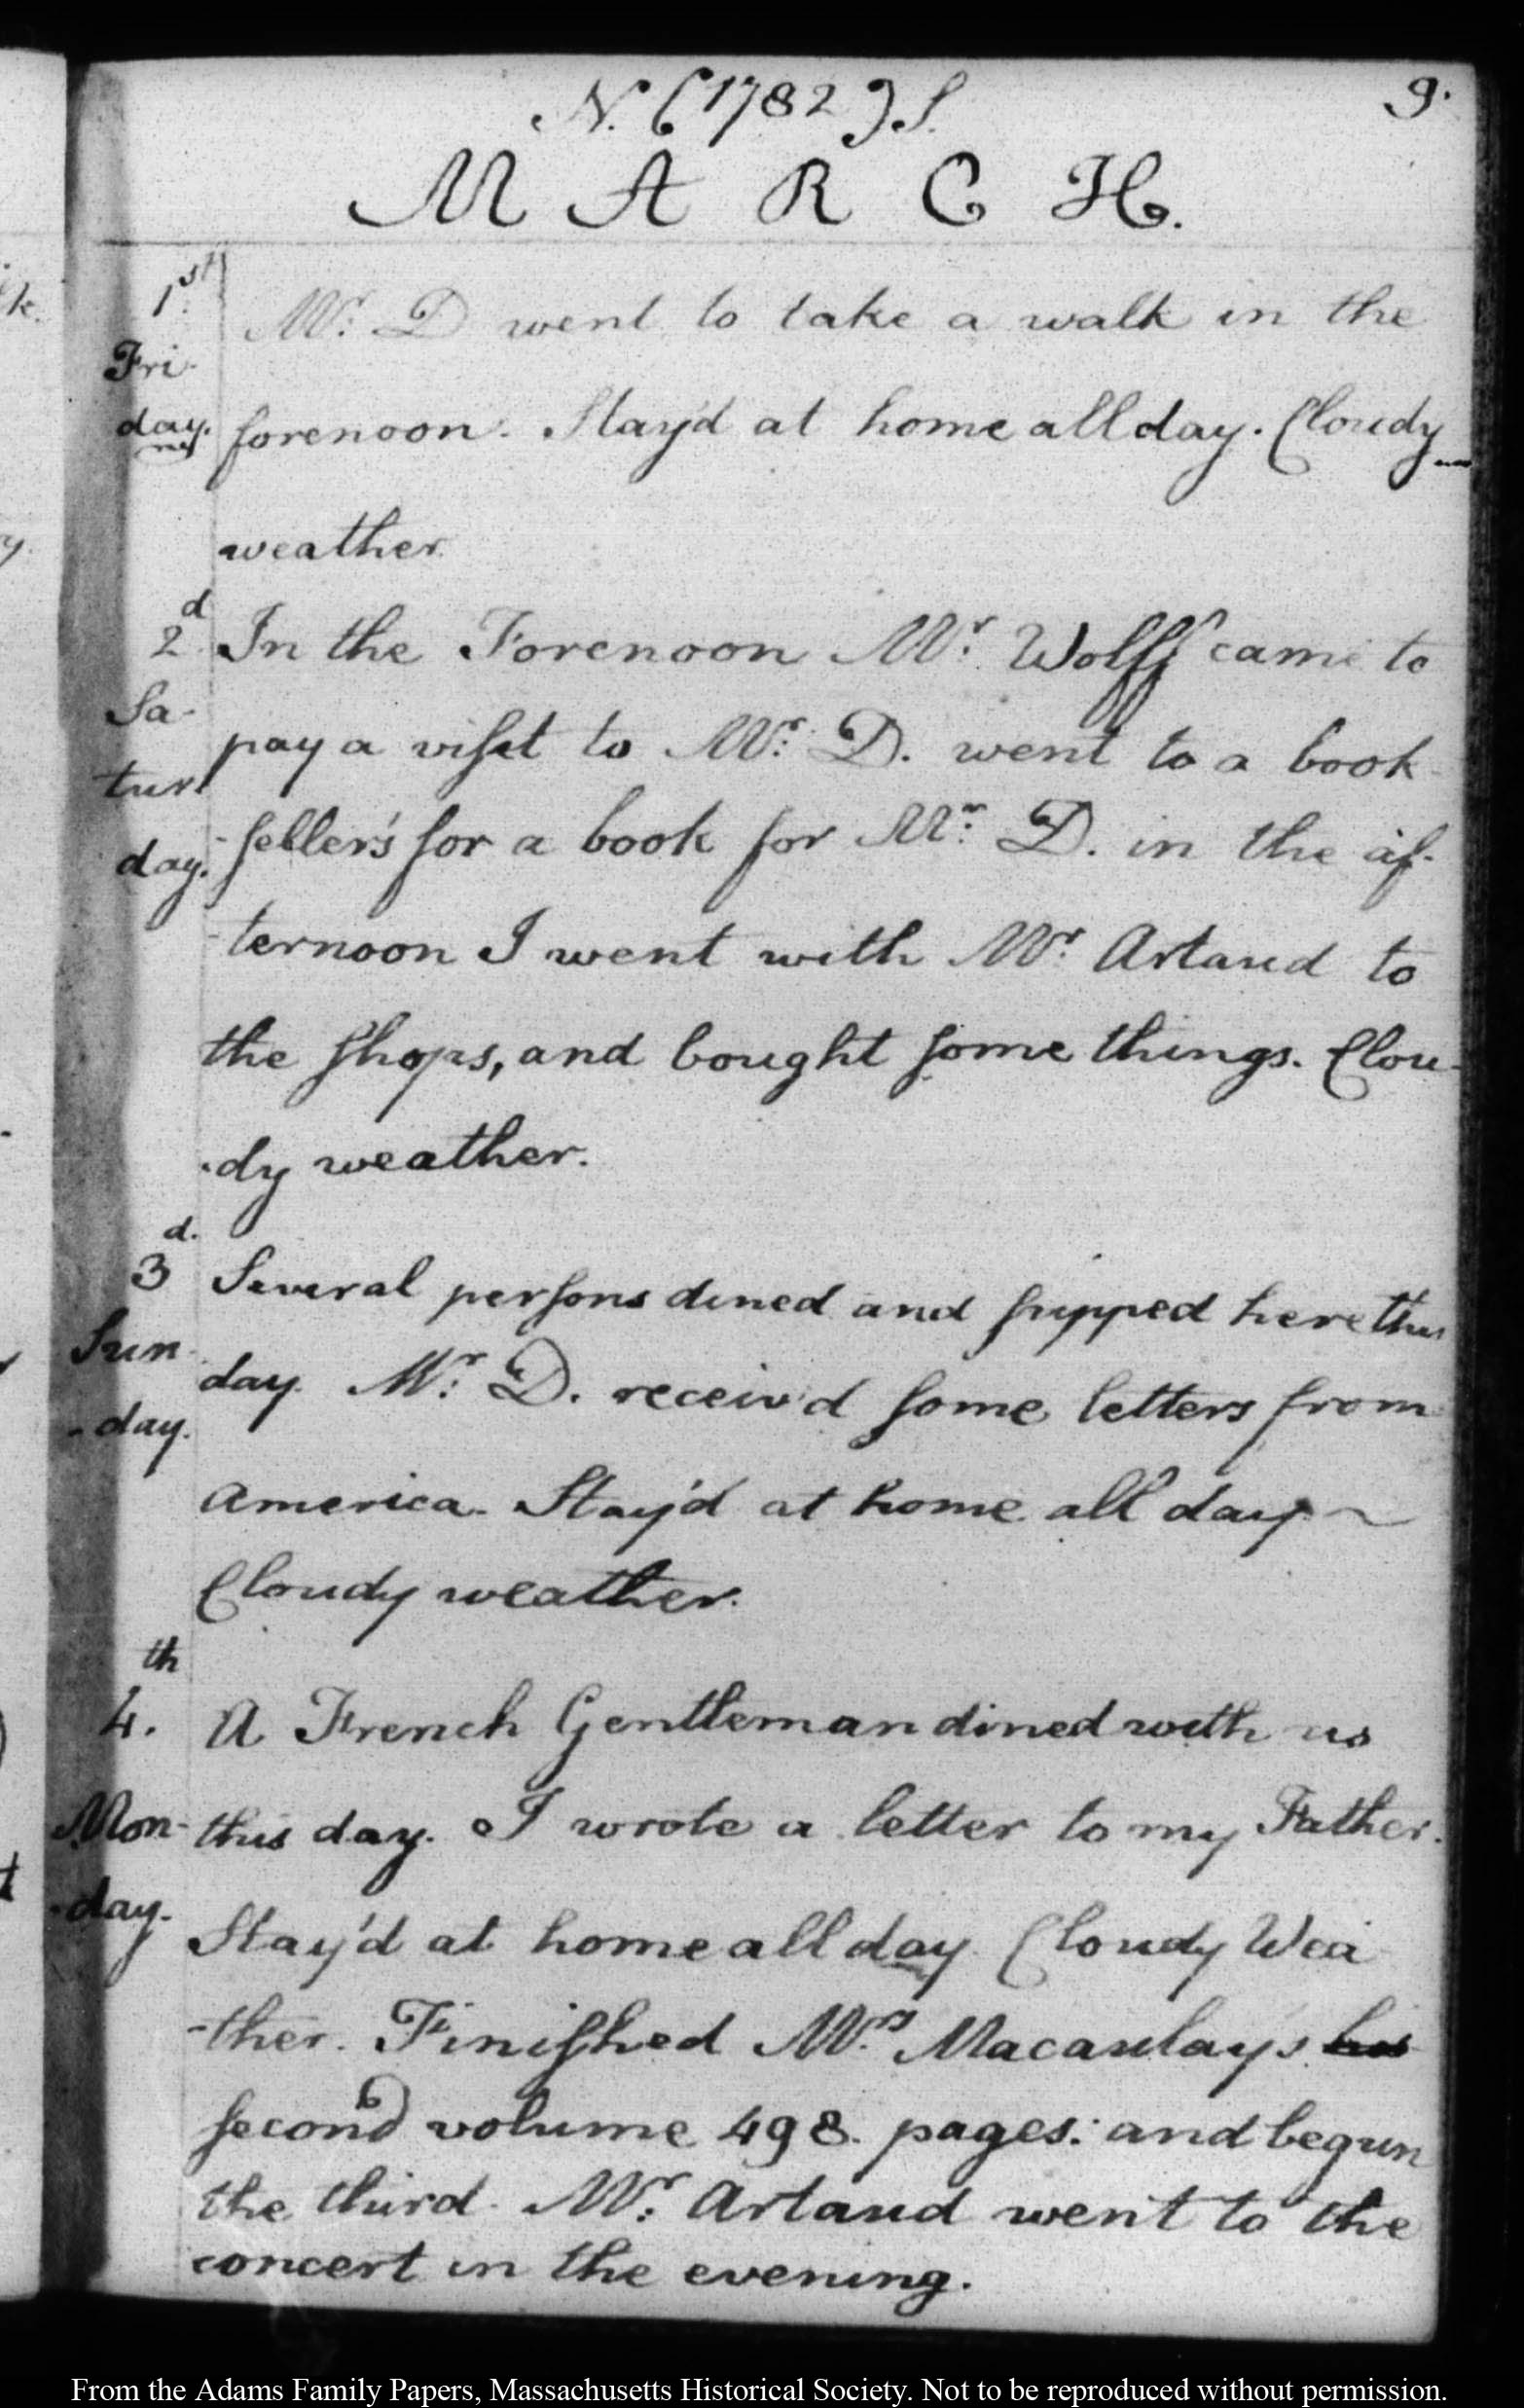 N. (1782) S.
9.
M A R C H.
1st
Mr. D went to take a walk in the
Fri-
day. forenoon. Stay'd at home all day. Cloudy
weather
2d In the Forenoon Mr. Wolff came to
Sa-
pay a visit to Mr. D. went to a book
tur
-seller's for a book for Mr. D. in the af-
day.
-ternoon I went with Mr. Artaud to
the shops, and bought some things. Clou-
-dy weather.
3d. Several persons dined and supped here this
Sun-
day. Mr. D. receiv'd some letters from
-day.
America. Stay'd at home all day ~
Cloudy weather.
4.th A French Gentleman dined with us
Mon- this day. I wrote a letter to my Father.
-day.
Stay'd at home all day Cloudy Wea
-ther. Finished Mrs. Macaulay's his
second volume 498. pages: and begun
the third. Mr. Artaud went to the
concert in the evening.
From the Adams Family Papers, Massachusetts Historical Society. Not to be reproduced without permission.